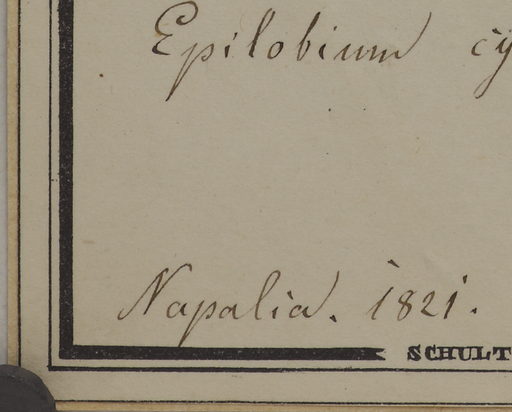 Epilobium cy
Napalia. 1821.
SCHULT